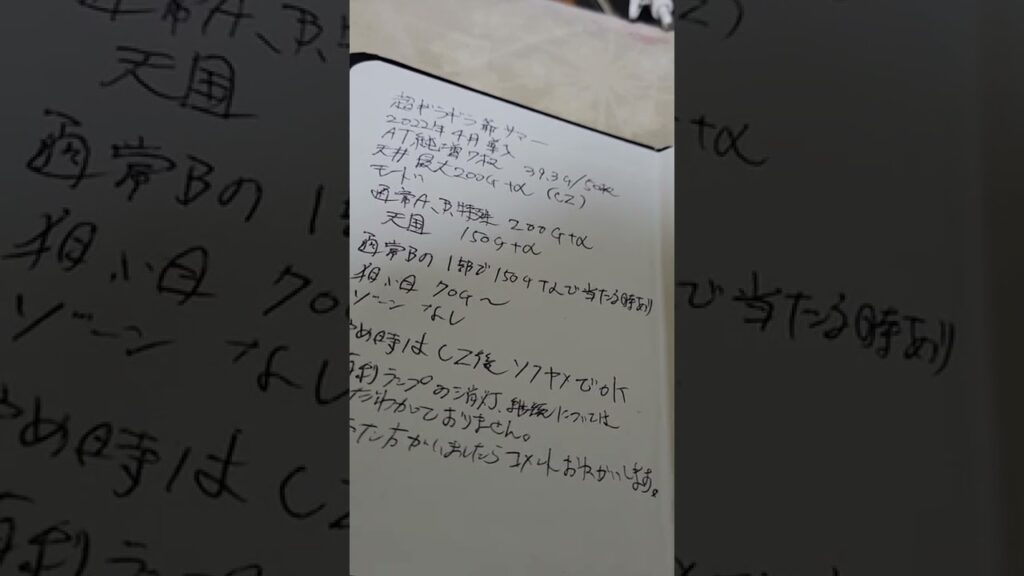 超ギラギラ爺サマー
2022年4月導入
AT純増7枚 39.3G/50枚
天井最大200G+α (CZ)
モード
通常A、B、特殊 200G+α
天国 150G+α
通常Bの1部で150G+αで当たる時あり
狙い目 70G〜
ゾーン なし
やめ時はCZ後ソクヤメでOK
有利ランプの消灯、継続については
だわかっておりません。
った方がいましたらコメントおねがいします。